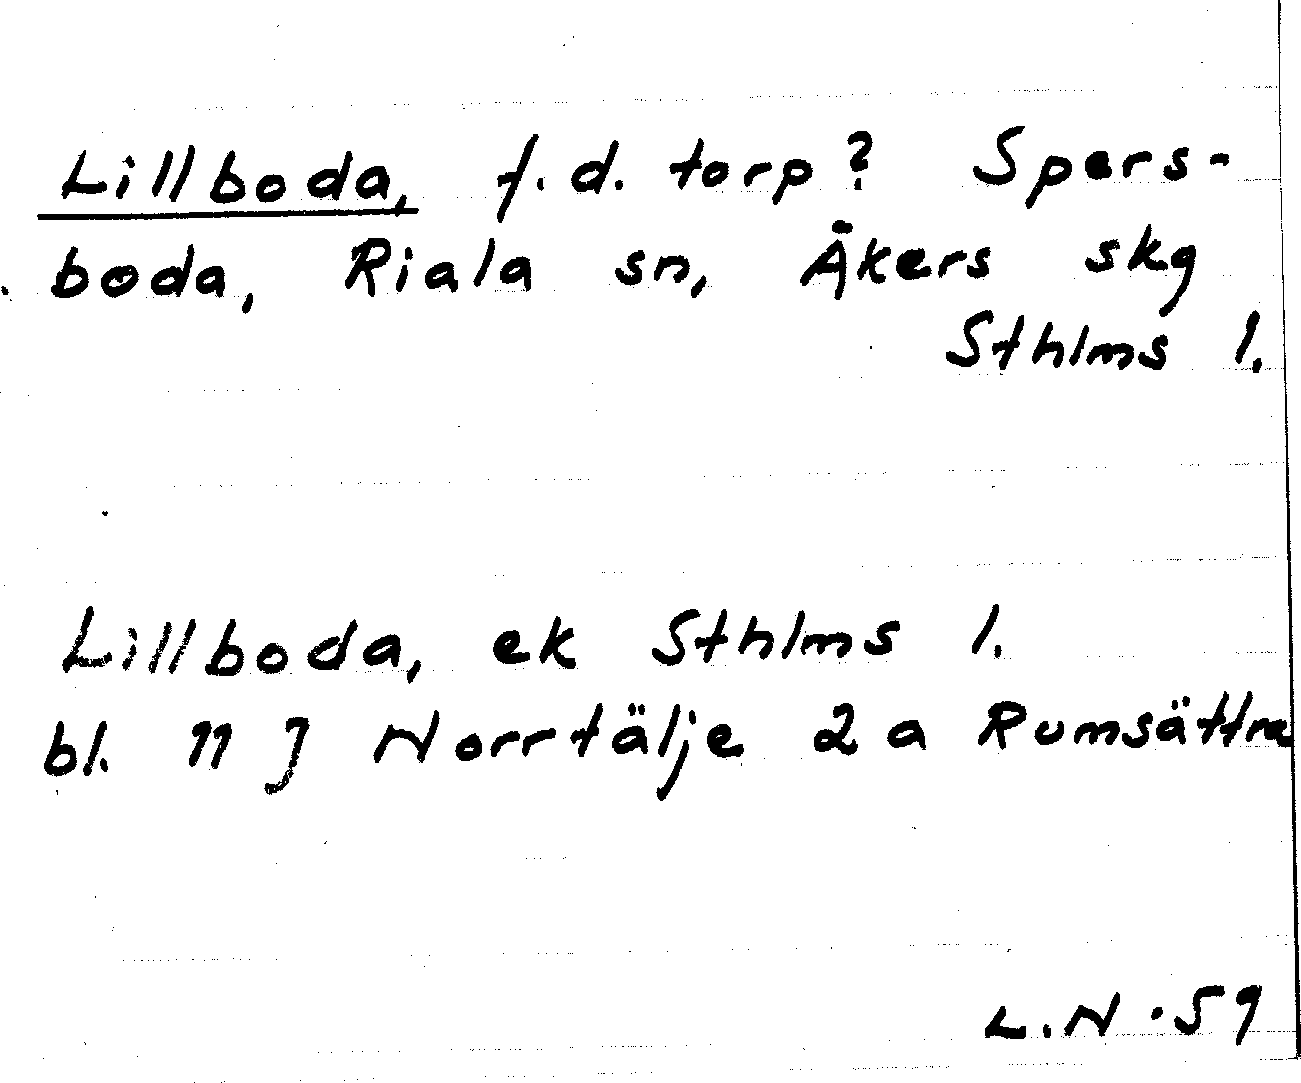 Lillboda, f.d. torp? Spers-
boda, Riala sn, Åkers skg
Sthlms l.
Lillboda, ek Sthlms l.
bl. 11 J Norrtälje 2a Rumsättra
L.N. 59